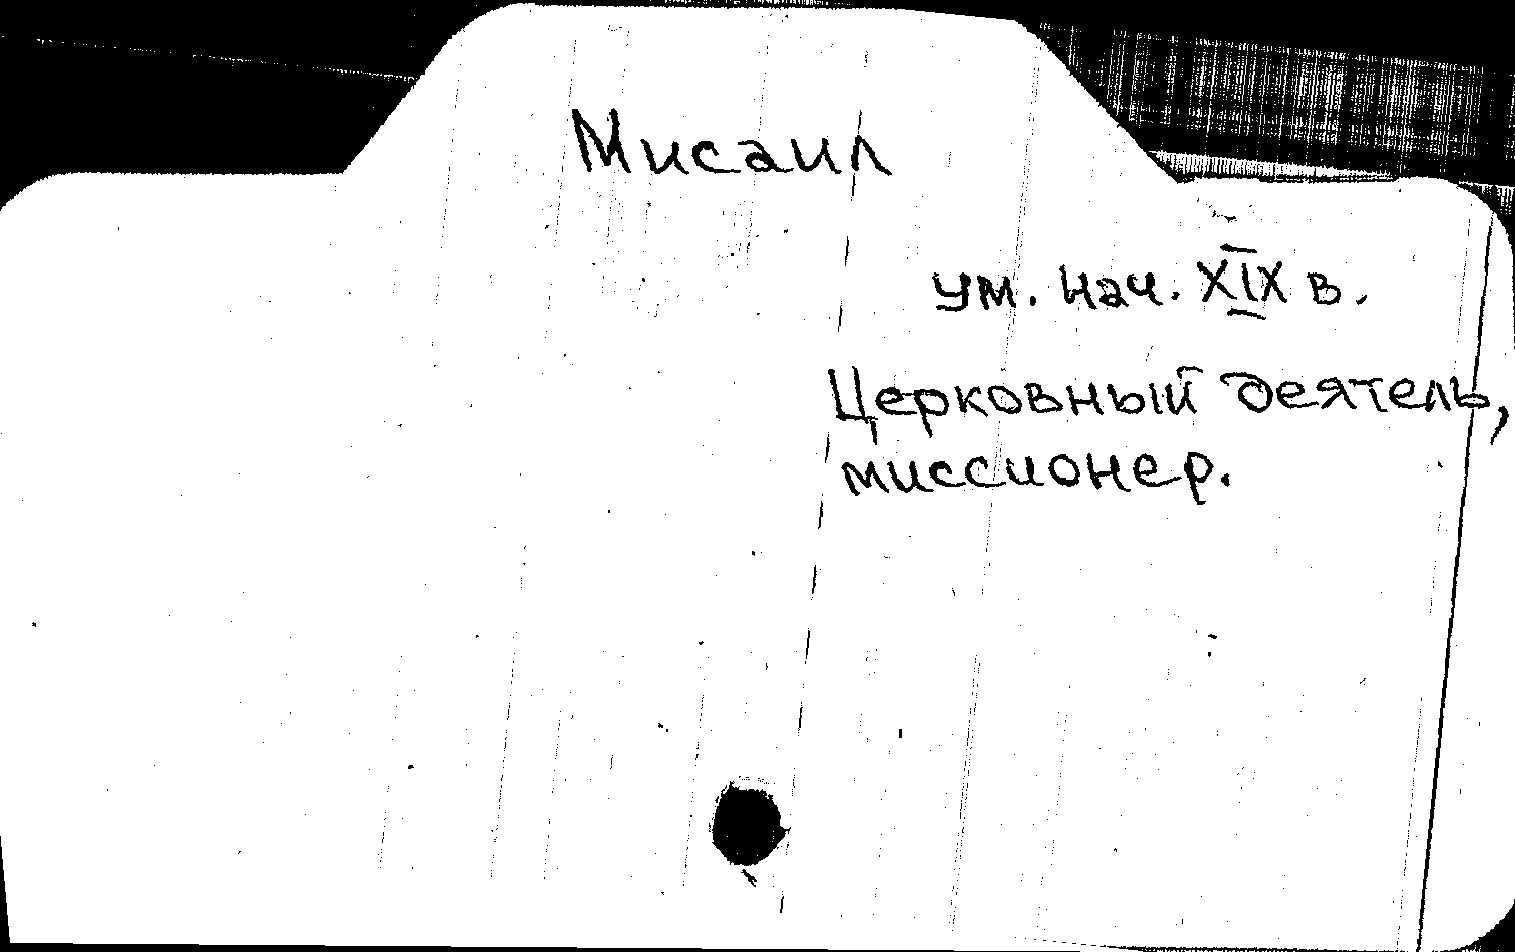 Мисаил
ум. нач. XIX в.
Церковный деятель,
миссионер.